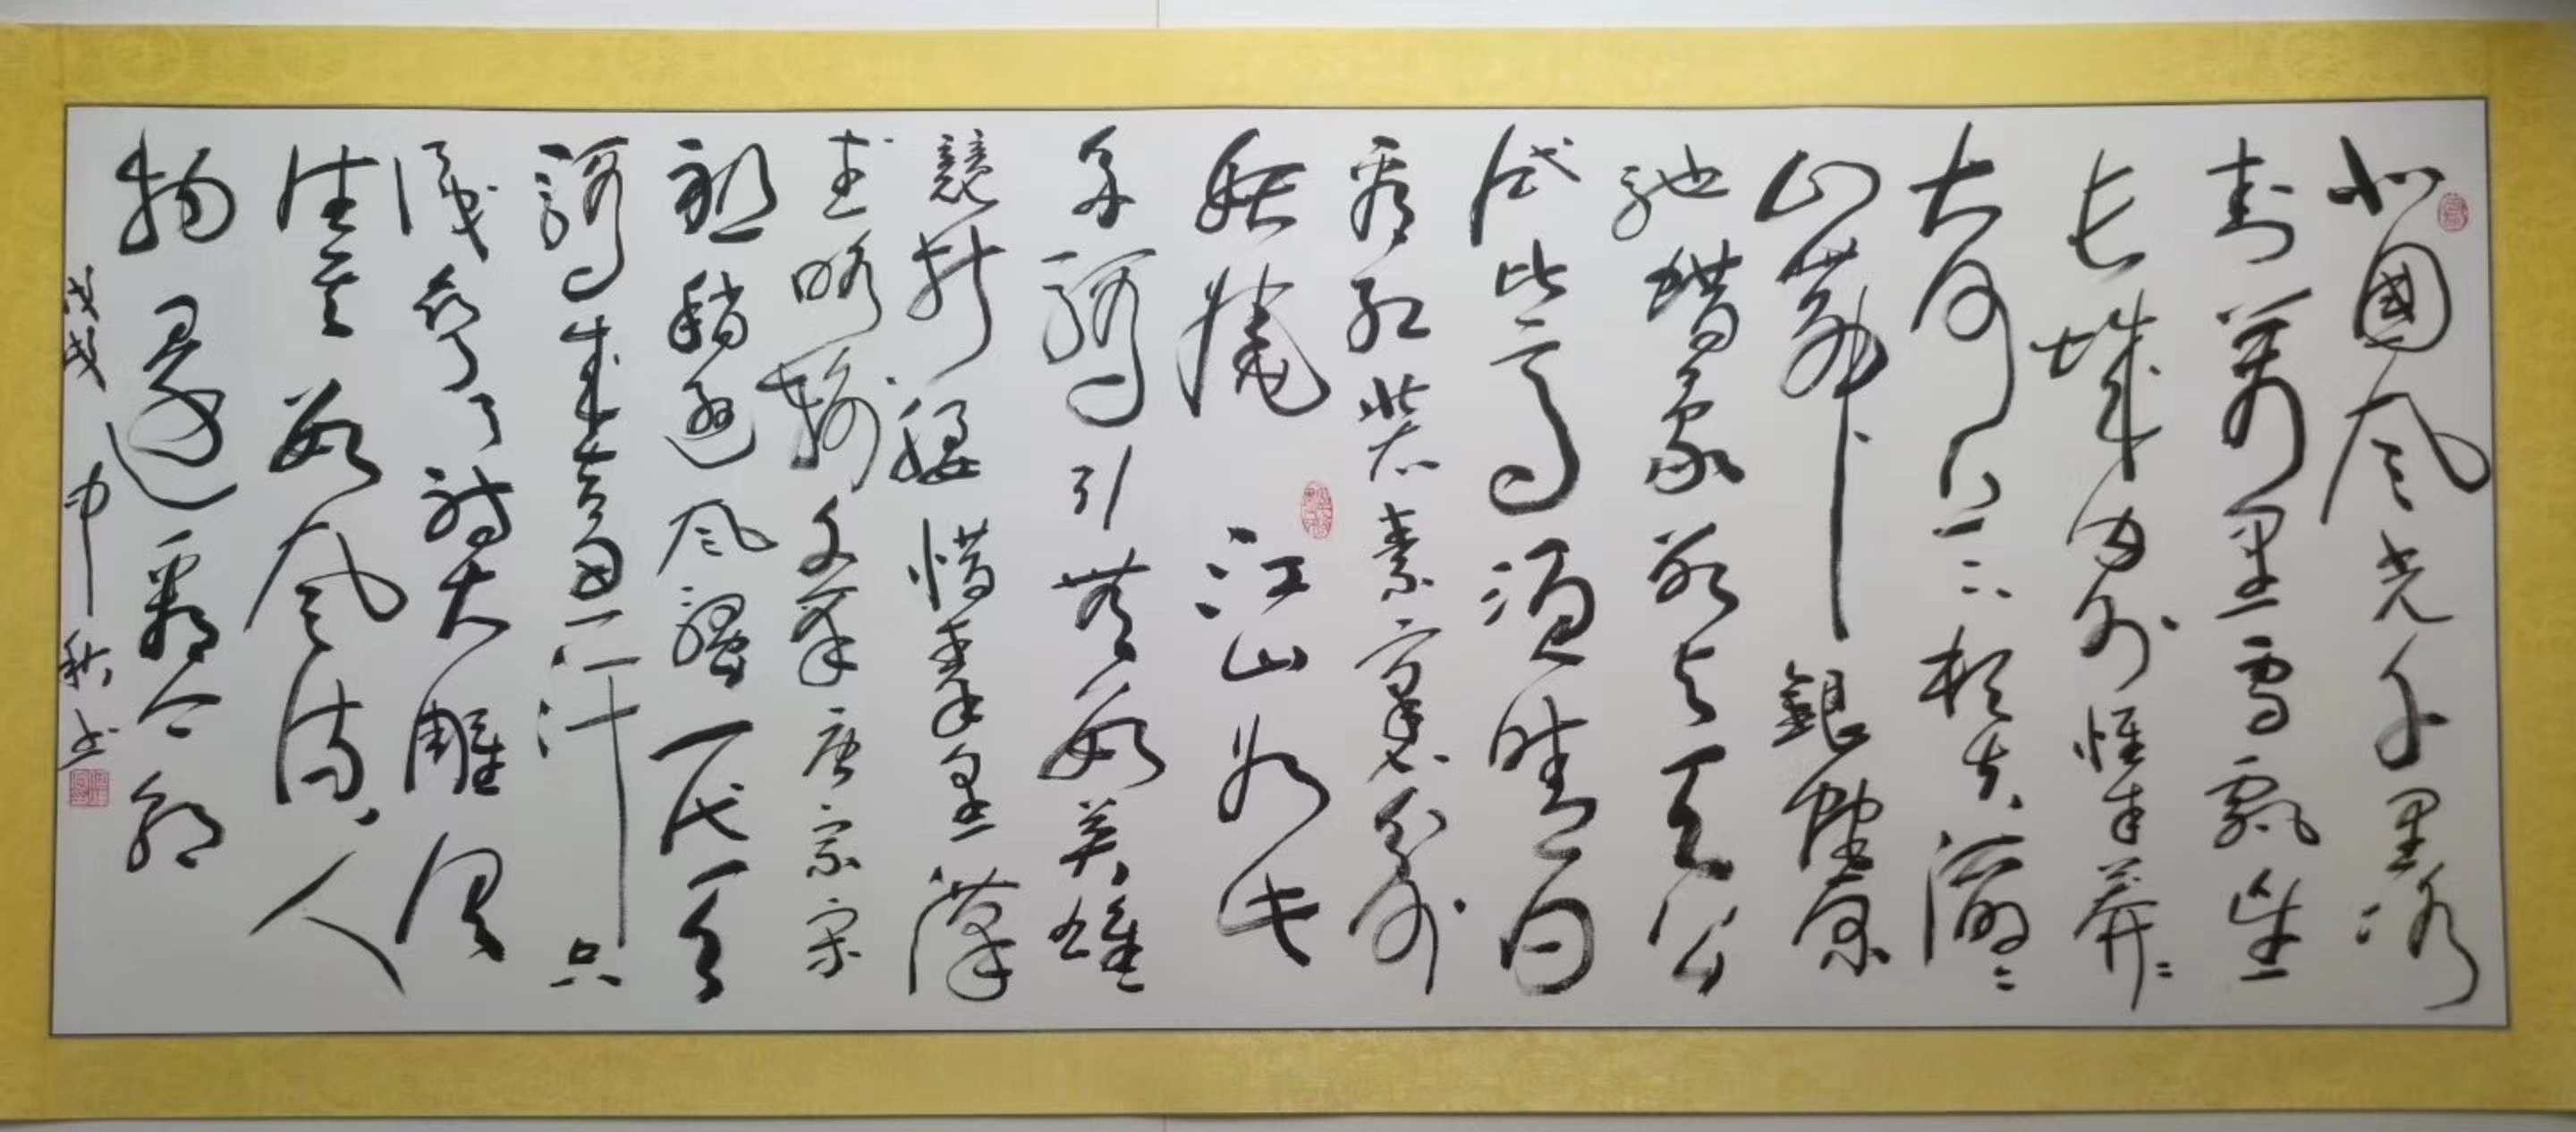 北國风光千里冰
封萬里雪飄望
长城内外惟余莽〻
大河上下頓失滔〻
山舞銀蛇原
馳蠟象欲与天公
试比高须晴日
看红装素裹分外
妖嬈江山如此
多嬌引無数英雄
競折腰惜秦皇漢
武略输文采唐宗宋
祖稍遜风騷一代天
骄成吉思汗只
识彎弓射大雕俱
往矣数风流人
物還看今朝
戊戌中秋书